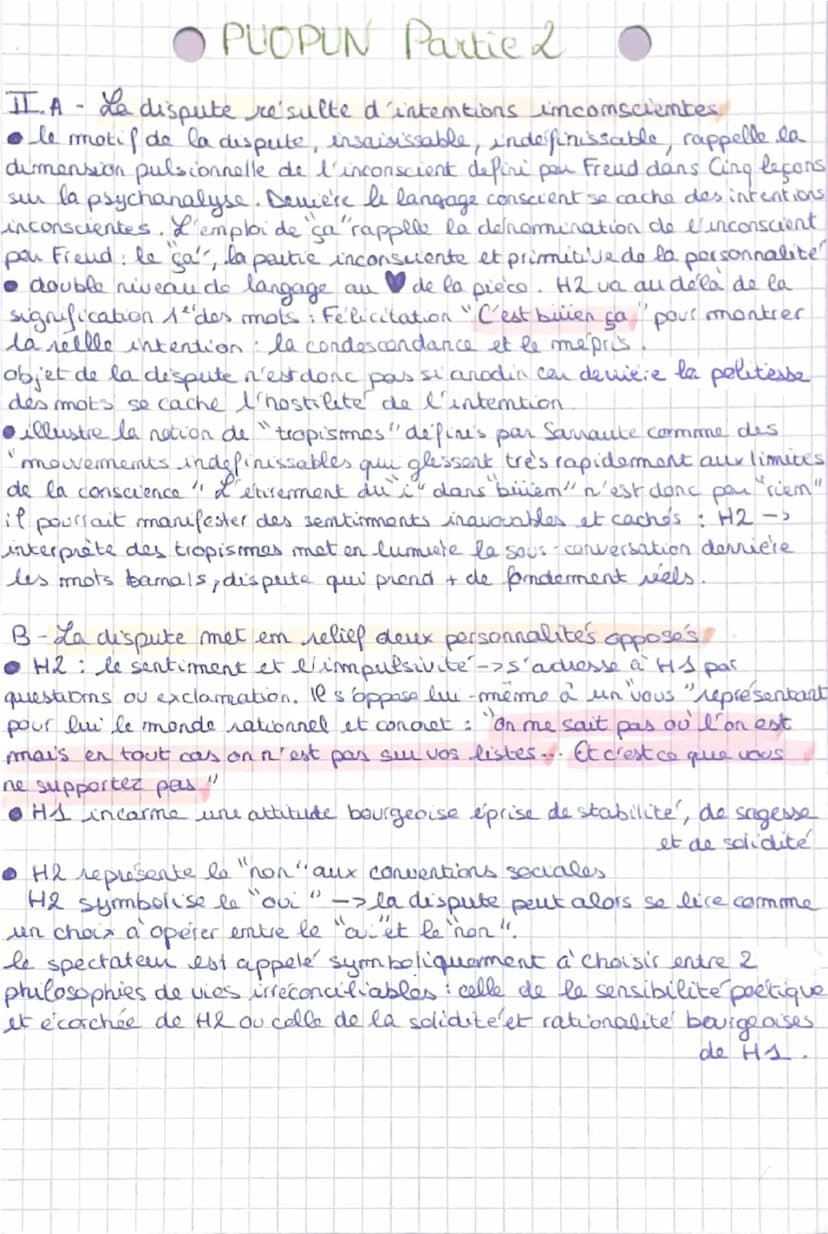 PUOPUN Partie 2
II.A - La dispute résulte d'intentions inconscientes
• le motif de la dispute, insaisissable, indéfinissable, rappelle la
dimension pulsionnelle de l'inconscient défini par Freud dans Cinq leçons
sur la psychanalyse. Derrière le langage conscient se cache des intentions
inconscientes. L'emploi de "ça" rappelle la dénomination de l'inconscient
par Freud : le "ça", la partie inconsciente et primitive de la personnalité
• double niveau de langage au ♥ de la pièce. H2 va au delà de la
signification 1ère des mots : Félicitation "C'est biiien ça" pour montrer
la réelle intention : la condescendance et le mépris.
objet de la dispute n'est donc pas si anodin car derrière la politesse
des mots se cache l'hostilité de l'intention
• illustre la notion de "tropismes" définis par Sarraute comme des
"mouvements indéfinissables qui glissent très rapidement aux limites
de la conscience" L'étirement du "i" dans "biiien" n'est donc pas "rien"
il pourrait manifester des sentiments inavouables et cachés : H2 ->
interprète des tropismes met en lumière la sous-conversation derrière
les mots banals, dispute qui prend + de fondement réels.
B - La dispute met en relief deux personnalités opposés
• H2 : le sentiment et l'impulsivité -> s'adresse à H1 par
questions ou exclamation. Il s'oppose lui-même à un "vous" représentant
pour lui le monde rationnel et concret : "On ne sait pas où l'on est
mais en tout cas on n'est pas sur vos listes... Et c'est ce que vous
ne supportez pas"
• H1 incarne une attitude bourgeoise éprise de stabilité, de sagesse
et de solidité
• H2 représente le "non" aux conventions sociales
H2 symbolise le "oui" -> la dispute peut alors se lire comme
un choix à opérer entre le "oui" et le "non".
le spectateur est appelé symboliquement à choisir entre 2
philosophies de vies irréconciliables : celle de la sensibilité poétique
et écorchée de H2 ou celle de la solidité et rationalité bourgeoises
de H1.